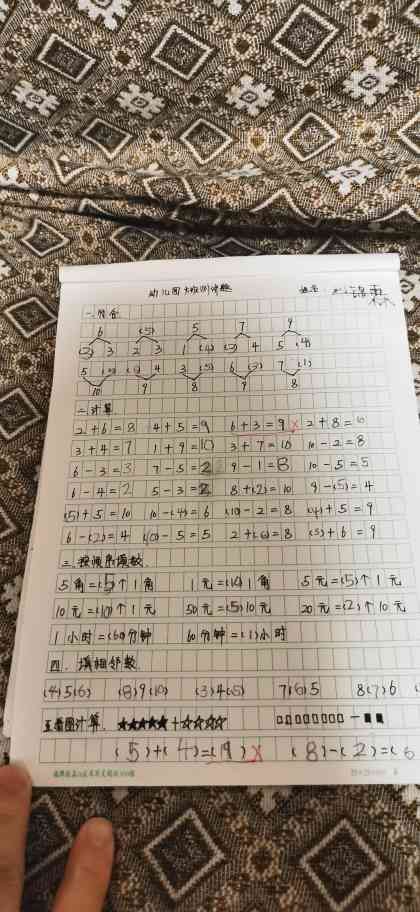 幼儿园大班测试题 姓名:
一.分合
6 (5) 5 7 9
(3) 3 2 3 1 (4) (3) 4 5 (4)
5 (5) (5) 4 3 (5) 6 (3) 7 (1)
10 9 8 9 8
二.计算
2+6=8 4+5=9 6+3=9 2+8=10
3+4=7 1+9=10 3+7=10 10-2=8
6-3=3 7-5=2 9-1=8 10-5=5
6-4=2 5-3=2 8+(2)=10 9-(5)=4
(5)+5=10 10-(4)=6 (10)-2=8 (4)+5=9
6-(2)=4 (10)-5=5 2+(6)=8 (3)+6=9
三.按顺序填数.
5角=(5)个1角 1元=(10)1角 5元=(5)个1元
10元=(10)个1元 50元=(5)10元 20元=(2)个10元
1小时=(60)分钟 60分钟=(1)小时
四.填相邻数.
(4)5(6) (8)9(10) (3)4(5) 7(6)5 8(7)6
五看图计算. ★★★★★+☆☆☆☆ □□□□□□□□-■■
(5)+(4)=(9) (8)-(2)=(6